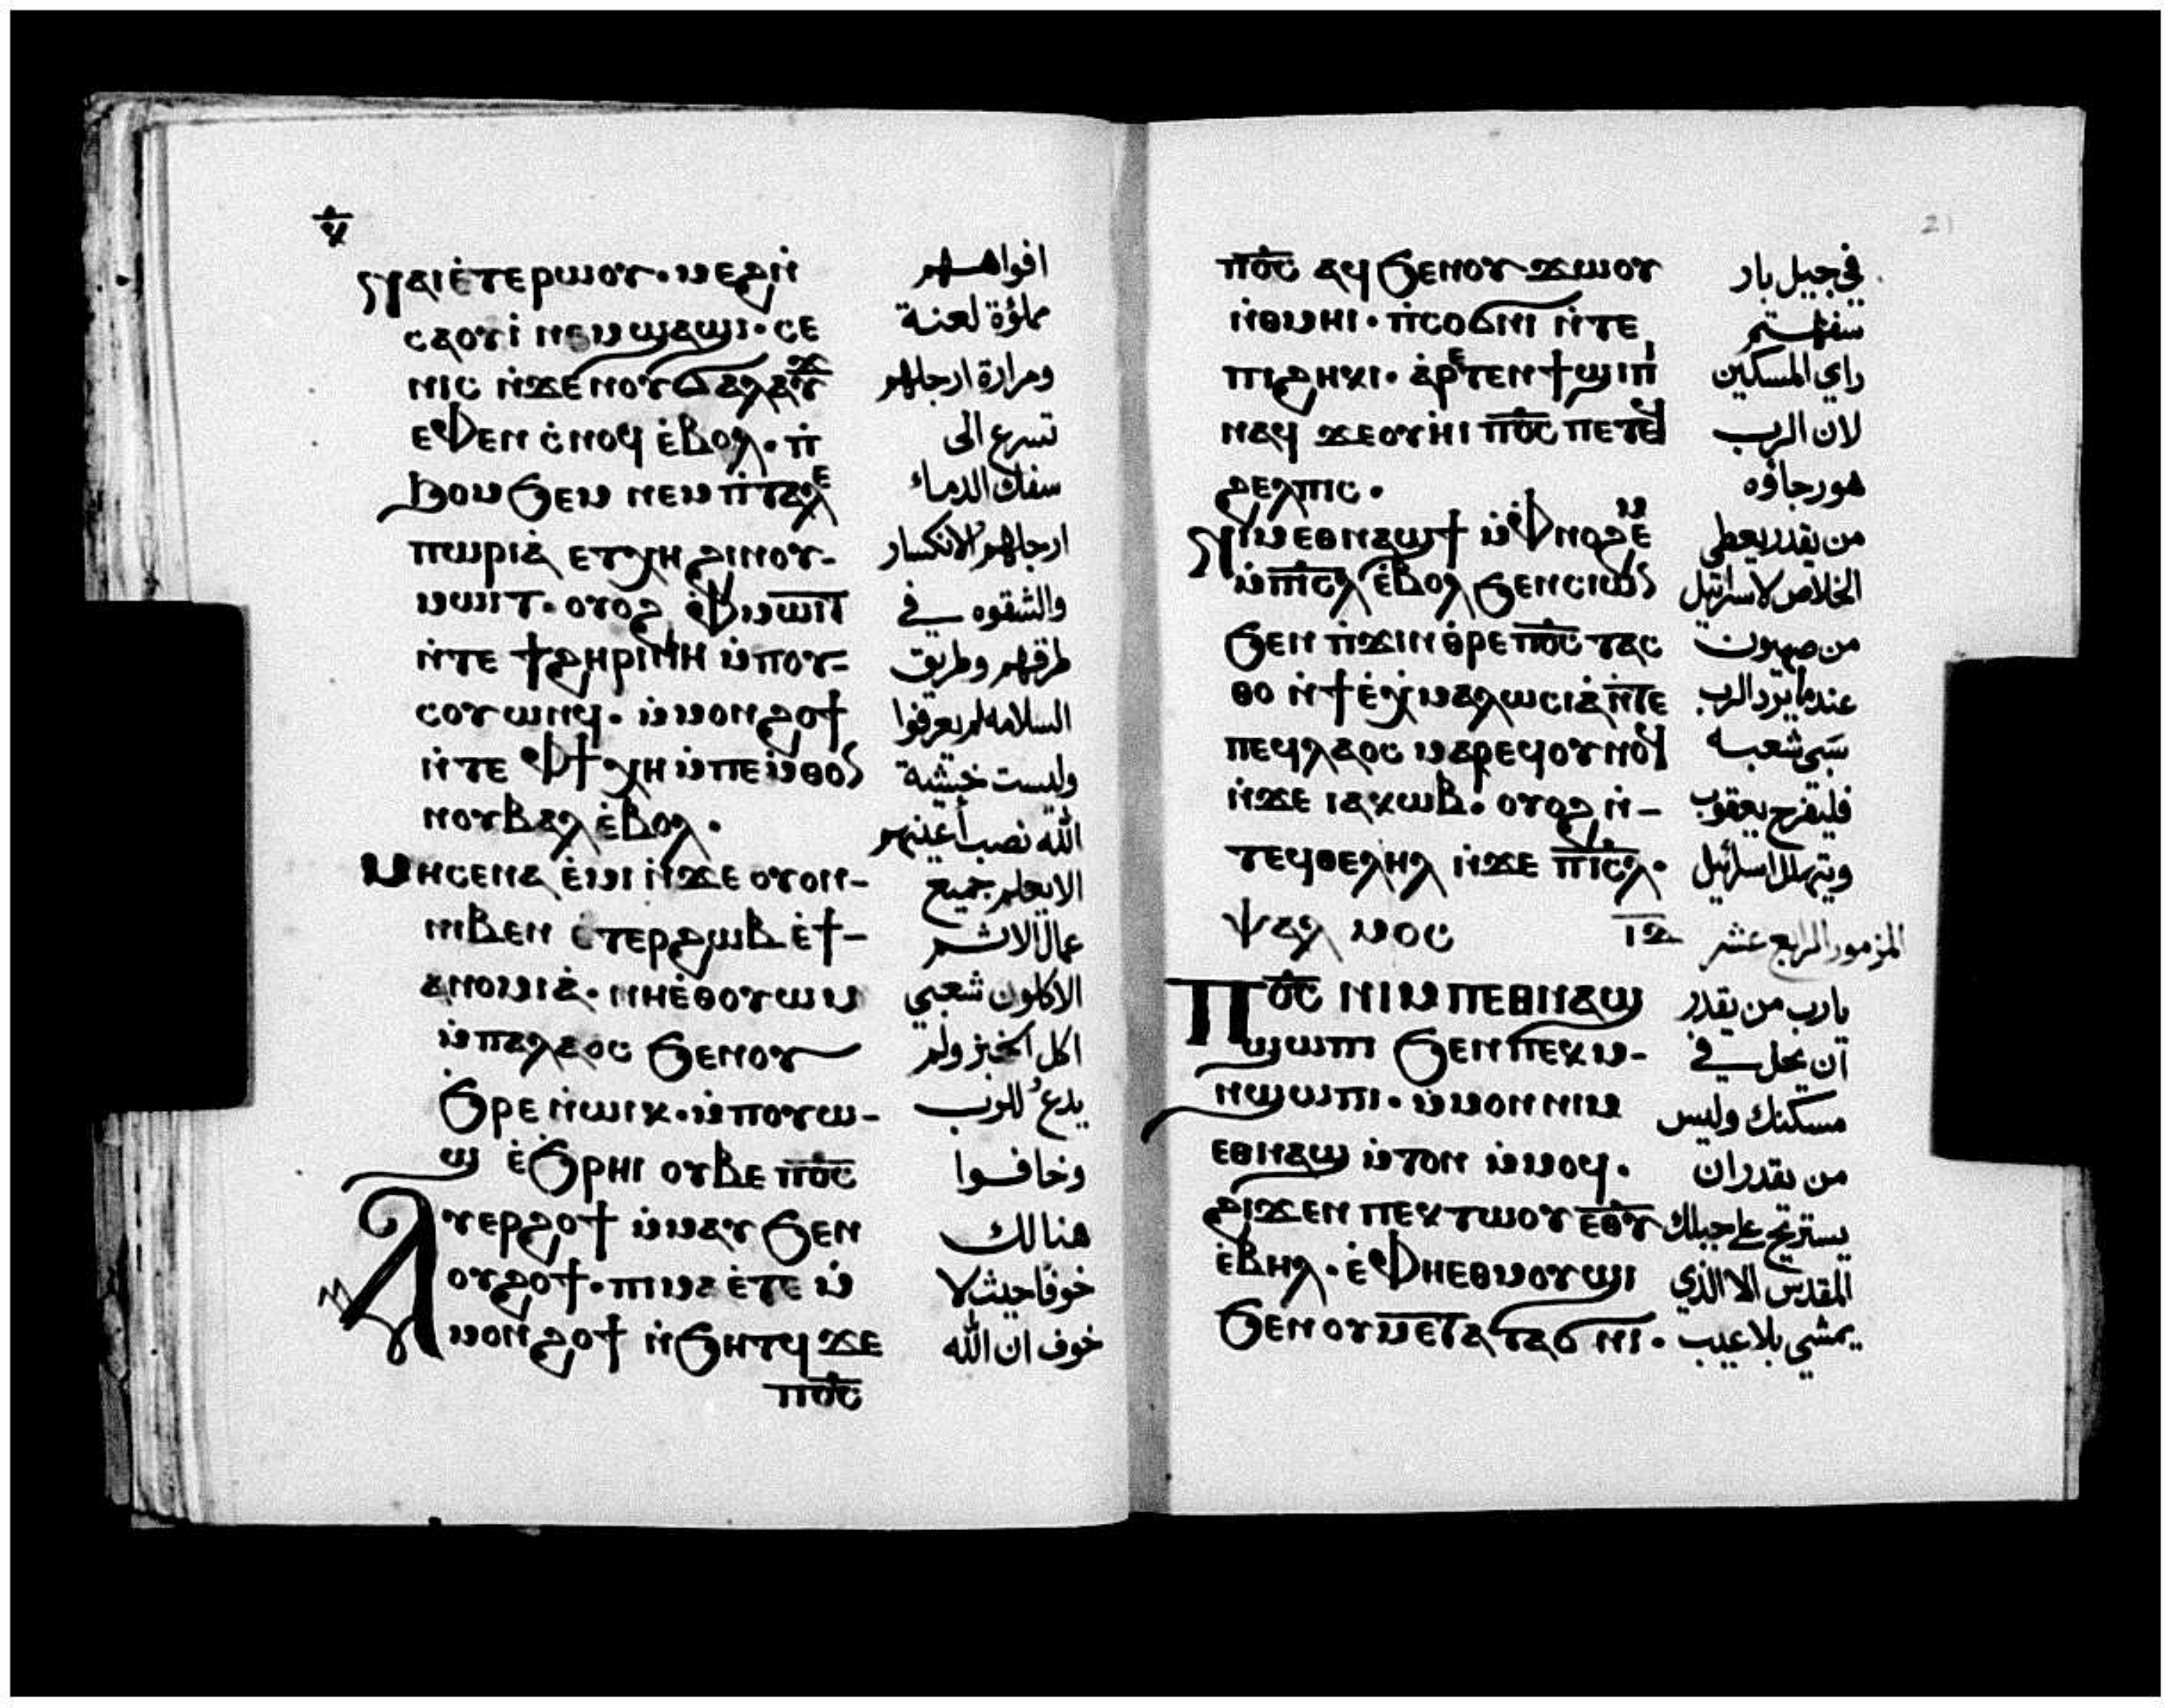 ⲛⲁⲓ ⲉ̀ⲧⲉⲣⲱⲟⲩ · ⲙⲉϩ ⲛ̀
ⲥⲁⲟⲩⲓ̀ ⲛⲉⲙ ϣⲁϣⲓ · ⲥⲉ
ⲛⲓⲥ ⲛ̀ϫⲉ ⲛⲟⲩϭⲁⲗⲁⲩϫ
ⲉⲫⲉⲛ ⲥ̀ⲛⲟϥ ⲉ̀ⲃⲟⲗ · ⲡ̀
ϧⲟⲙϧⲉⲙ ⲛⲉⲙ ⲡ̀ⲧⲁⲗⲉ
ⲡⲱⲣⲓⲁ̀ ⲉⲧⲭⲏ ϩⲓ ⲛⲟⲩ-
ⲙⲱⲓⲧ · ⲟⲩⲟϩ ⲫ̀ⲙⲱⲓⲧ
ⲛ̀ⲧⲉ ϯϩⲏⲣⲓⲛⲏ ⲙ̀ⲡⲟⲩ-
ⲥⲟⲩⲱⲛϥ · ⲙ̀ⲙⲟⲛ ϩⲟϯ
ⲛ̀ⲧⲉ ⲫϯ ⲭⲏ ⲙ̀ⲡⲉⲙ̀ⲑⲟ
ⲛⲟⲩⲃⲁⲗ ⲉ̀ⲃⲟⲗ ·
ⲙⲏ ⲥⲉⲛⲁ ⲉ̀ⲙⲓ ⲛ̀ϫⲉ ⲟⲩⲟⲛ-
ⲛⲓⲃⲉⲛ ⲉ̀ⲧⲉⲣϩⲱⲃ ⲉ̀ϯ-
ⲁⲛⲟⲙⲓⲁ̀ · ⲛⲏⲉ̀ⲑⲟⲩⲱⲙ
ⲙ̀ⲡⲁⲗⲁⲟⲥ ϧⲉⲛ ⲟⲩ
ϧ̀ⲣⲉ ⲛ̀ⲱⲓⲕ · ⲙ̀ⲡⲟⲩⲱ-
ϣ ⲉ̀ϧⲣⲏⲓ ⲟⲩⲃⲉ ⲡⲟ̅ⲥ̅
ⲁⲩⲉⲣϩⲟϯ ⲙ̀ⲙⲁⲩ ϧⲉⲛ
ⲟⲩϩⲟϯ · ⲡⲓⲙⲁ ⲉ̀ⲧⲉ ⲙ̀
ⲙⲟⲛ ϩⲟϯ ⲛ̀ϧⲏⲧϥ ϫⲉ
ⲡⲟ̅ⲥ̅
افواههم
مملؤة لعنة
ومرارة ارجلهم
تسرع الى
سفك الدماء
ارجلهم الانكسار
والشقوه في
طرقهم وطريق
السلامه لم يعرفوا
وليست خشية
الله نصب أعينهم
الا يعلم جميع
عمال الاثم
الاكلون شعبي
اكل الخبز ولم
يدعُ للرب
وخافوا
هنالك
خوفًا حيث لا
خوف ان الله
21
ⲡⲟ̅ⲥ̅ ⲁϥ ϧⲉⲛ ⲟⲩ ϫⲱⲟⲩ
ⲛ̀ⲑⲙⲏⲓ · ⲡ̀ⲥⲟϭⲛⲓ ⲛ̀ⲧⲉ
ⲡⲓϩⲏⲕⲓ · ⲁ̀ⲣⲉⲧⲉⲛϯϣⲓⲡⲓ
ⲛⲁϥ ϫⲉ ⲟⲩⲏⲓ ⲡⲟ̅ⲥ̅ ⲡⲉⲧⲉϥ
ϩⲉⲗⲡⲓⲥ ·
ⲛⲓⲙ ⲉⲑⲛⲁϣϯ ⲙ̀ⲫⲛⲟϩⲉⲙ
ⲙ̀ⲡⲓ̅ⲥ̅ⲗ̅ ⲉ̀ⲃⲟⲗ ϧⲉⲛ ⲥⲓⲱⲛ
ϧⲉⲛ ⲡ̀ϫⲓⲛⲑⲣⲉ ⲡⲟ̅ⲥ̅ ⲧⲁⲥ
ⲑⲟ ⲛ̀ϯⲉ̀ⲭⲙⲁⲗⲱⲥⲓⲁ̀ ⲛ̀ⲧⲉ
ⲡⲉϥⲗⲁⲟⲥ ⲙⲁⲣⲉϥⲟⲩⲛⲟϥ
ⲛ̀ϫⲉ ⲓⲁⲕⲱⲃ · ⲟⲩⲟϩ ⲛ̀-
ⲧⲉϥⲑⲉⲗⲏⲗ ⲛ̀ϫⲉ ⲡⲓ̅ⲥ̅ⲗ̅ ·
ⲯⲁⲗ ⲙⲟⲥ ⲓ̅ⲇ̅
ⲡⲟ̅ⲥ̅ ⲛⲓⲙ ⲡⲉⲑⲛⲁϣ
ϣⲱⲡⲓ ϧⲉⲛ ⲡⲉⲕⲙ-
ⲛϣⲱⲡⲓ · ⲙ̀ⲙⲟⲛ ⲛⲓⲙ
ⲉⲑⲛⲁϣ ⲙ̀ⲧⲟⲛ ⲙ̀ⲙⲟϥ ·
ϩⲓϫⲉⲛ ⲡⲉⲕⲧⲱⲟⲩ ⲉ̅ⲑ̅ⲩ̅
ⲉ̀ⲃⲏⲗ · ⲉ̀ⲫⲏⲉⲑⲙⲟϣⲓ
ϧⲉⲛ ⲟⲩⲙⲉⲧⲁⲧⲁϭⲛⲓ ·
في جيل بار
سفهتم
راي المسكين
لان الرب
هو رجاؤه
من يقدر يعطي
الخلاص لاسرائيل
من صهيون
عندما يرد الرب
سَبي شعبه
فليفرح يعقوب
ويتهلل اسرائيل
المزمور الرابع عشر
يارب من يقدر
ان يحل في
مسكنك وليس
من يقدر ان
يستريح على جبلك
المقدس الا الذي
يمشي بلا عيب